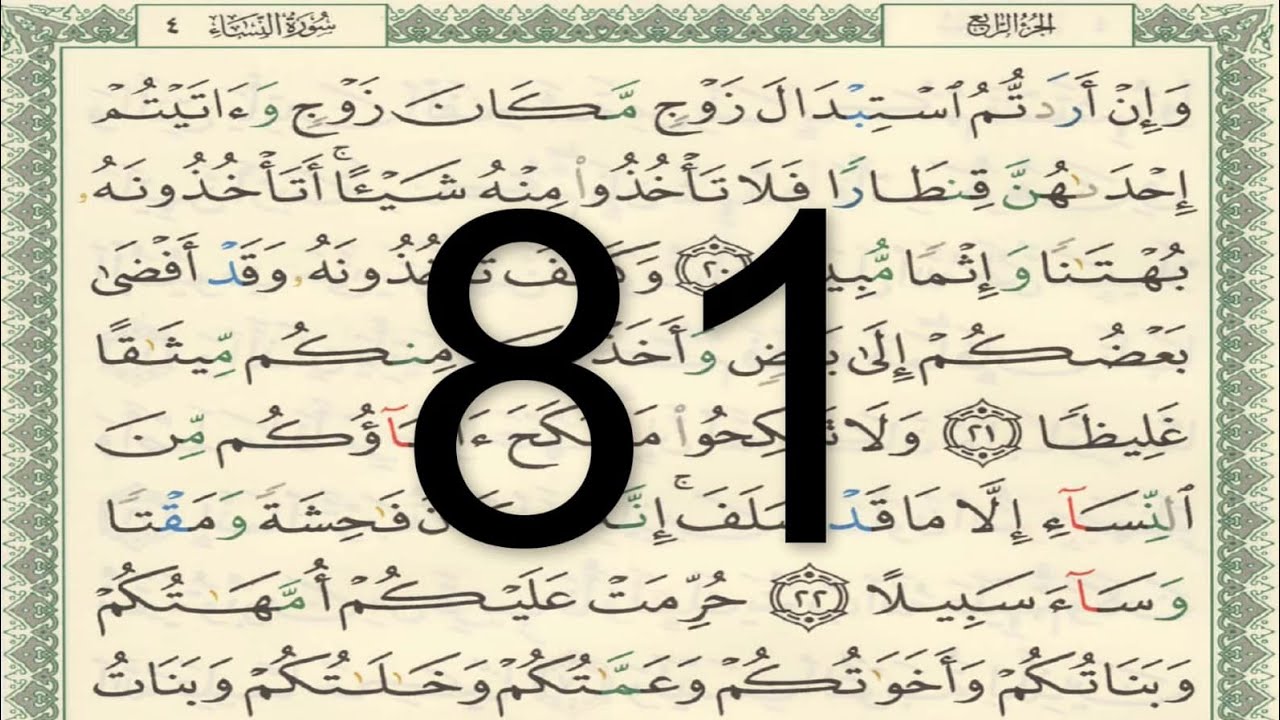 سُورَةُ النِّسَاءِ ٤
الجُزْءُ الرَّابِعُ
وَإِنْ أَرَدتُّمُ ٱسْتِبْدَالَ زَوْجٍ مَّكَانَ زَوْجٍ وَءَاتَيْتُمْ
إِحْدَىٰهُنَّ قِنطَارًا فَلَا تَأْخُذُوا۟ مِنْهُ شَيْـًٔا ۚ أَتَأْخُذُونَهُۥ
بُهْتَـٰنًا وَإِثْمًا مُّبِينًا ٢٠ وَكَيْفَ تَأْخُذُونَهُۥ وَقَدْ أَفْضَىٰ
بَعْضُكُمْ إِلَىٰ بَعْضٍ وَأَخَذْنَ مِنكُم مِّيثَـٰقًا
غَلِيظًا ٢١ وَلَا تَنكِحُوا۟ مَا نَكَحَ ءَابَآؤُكُم مِّنَ
ٱلنِّسَآءِ إِلَّا مَا قَدْ سَلَفَ ۚ إِنَّهُۥ كَانَ فَـٰحِشَةً وَمَقْتًا
وَسَآءَ سَبِيلًا ٢٢ حُرِّمَتْ عَلَيْكُمْ أُمَّهَـٰتُكُمْ
وَبَنَاتُكُمْ وَأَخَوَٰتُكُمْ وَعَمَّـٰتُكُمْ وَخَـٰلَـٰتُكُمْ وَبَنَاتُ
81